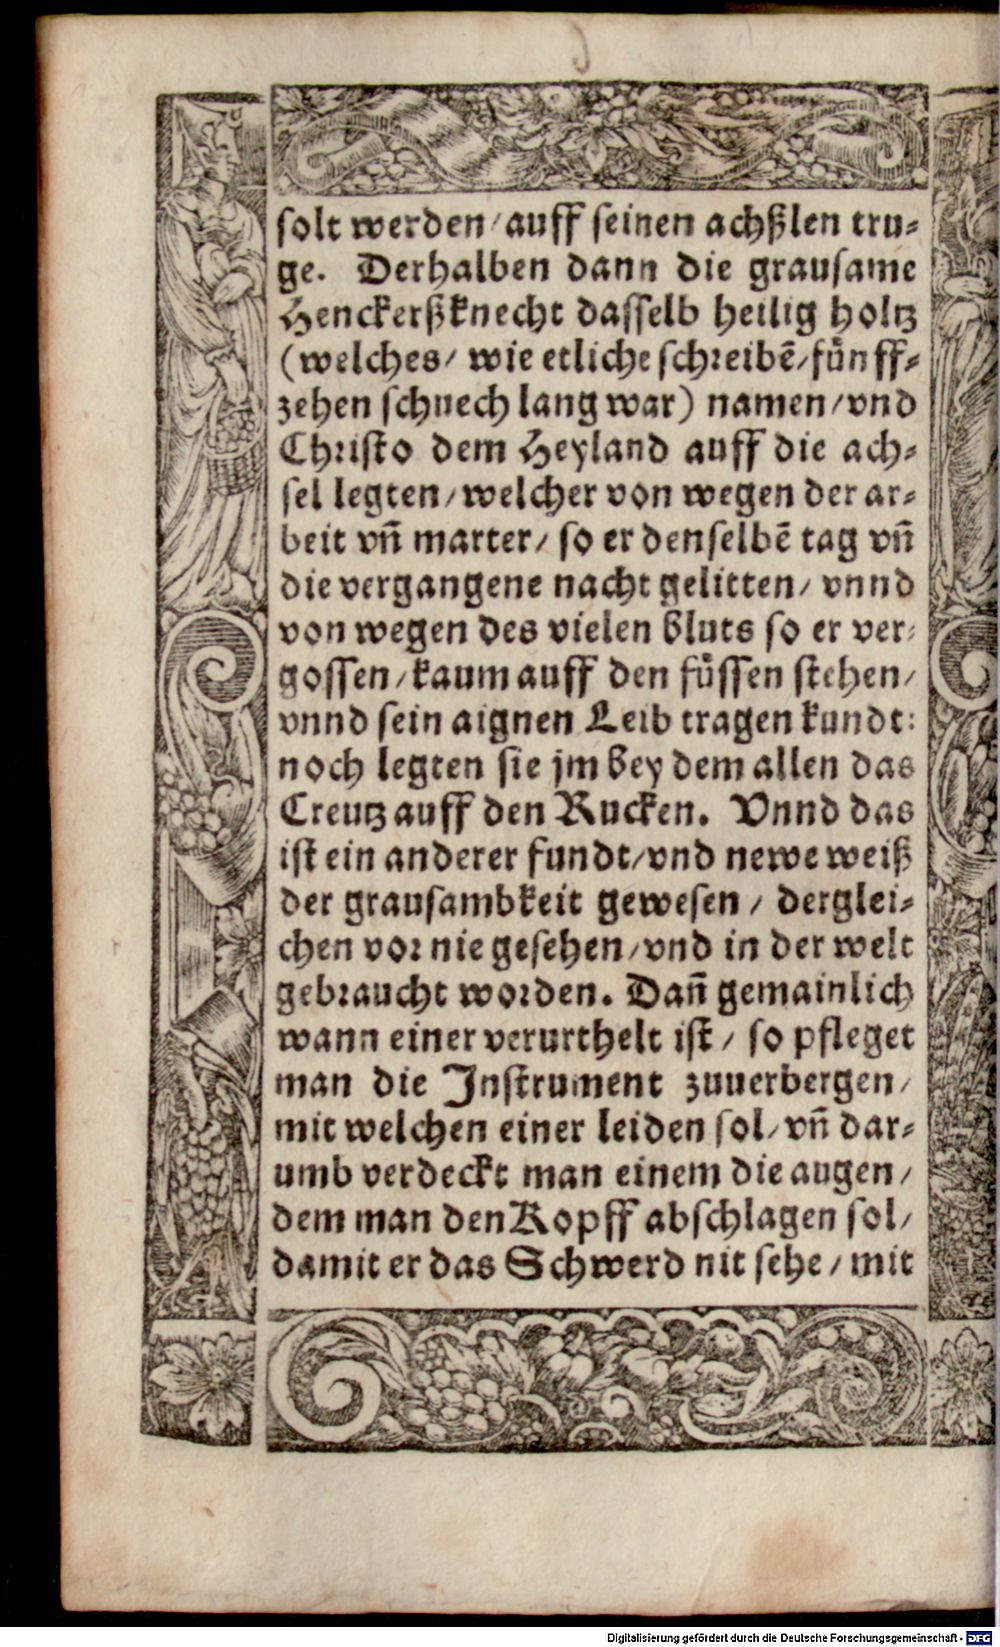 solt werden/ auff seinen achßlen tru-
ge. Derhalben dann die grausame
Henckerßknecht dasselb heilig holtz
(welches/ wie etliche schreibẽ/ fünff-
zehen schuech lang war) namen/ vnd
Christo dem Heyland auff die ach-
sel legten/ welcher von wegen der ar-
beit vñ marter/ so er denselbẽ tag vñ
die vergangene nacht gelitten/ vnnd
von wegen des vielen bluts so er ver-
gossen/ kaum auff den füssen stehen/
vnnd sein aignen Leib tragen kundt:
noch legten sie jm bey dem allen das
Creutz auff den Rucken. Vnnd das
ist ein anderer fundt/ vnd newe weiß
der grausambkeit gewesen / derglei-
chen vor nie gesehen/ vnd in der welt
gebraucht worden. Dañ gemainlich
wann einer verurthelt ist / so pfleget
man die Instrument zuuerbergen/
mit welchen einer leiden sol/ vñ dar-
umb verdeckt man einem die augen/
dem man den Kopff abschlagen sol/
damit er das Schwerd nit sehe / mit
Digitalisierung gefördert durch die Deutsche Forschungsgemeinschaft - DFG